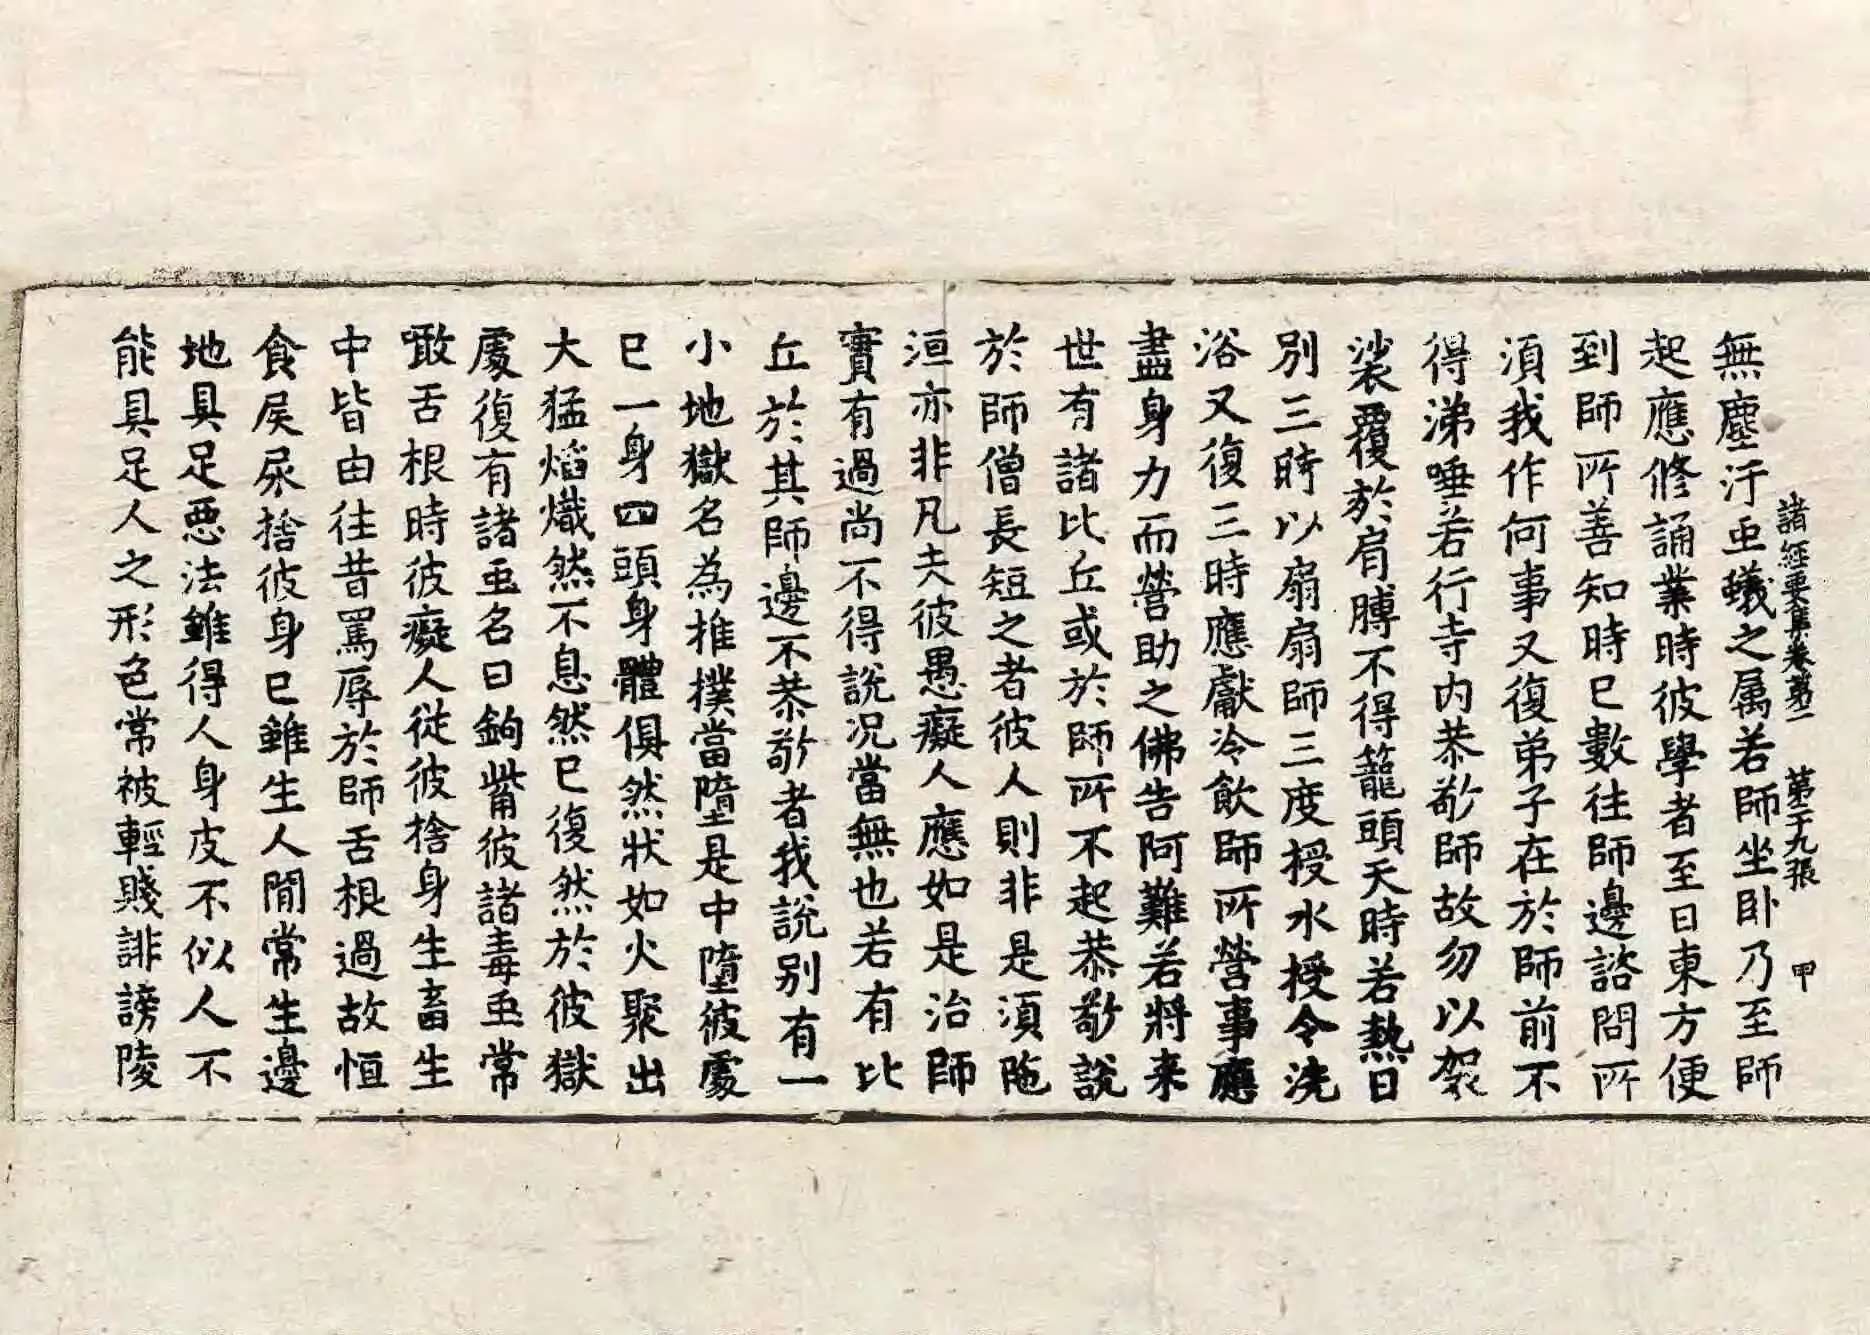 諸經要集卷第二　第十九張　甲
無塵汙䖝蟻之属若師坐卧乃至師
起應修誦業時彼學者至日東方便
到師所善知時已數往師邊諮問所
湏我作何事又復弟子在於師前不
得涕唾若行寺内恭敬師故勿以袈
裟覆於肩膊不得籠頭天時若熱日
别三時以扇扇師三度授水授令洗
浴又復三時應獻冷飲師所營事應
盡身力而營助之佛告阿難若將来
世有諸比丘或於師所不起恭敬說
於師僧長短之者彼人則非是湏陁
洹亦非凡夫彼愚癡人應如是治師
實有過尚不得說况當無也若有比
丘於其師邊不恭敬者我說别有一
小地獄名為推撲當墮是中墮彼處
已一身四頭身體俱然狀如火聚出
大猛焰熾然不息然已復然於彼獄
處復有諸䖝名曰鉤觜彼諸毒䖝常
噉舌根時彼癡人從彼捨身生畜生
中皆由往昔罵辱於師舌根過故恒
食屎尿捨彼身已雖生人間常生邊
地具足惡法雖得人身皮不似人不
能具足人之形色常被輕賤誹謗陵